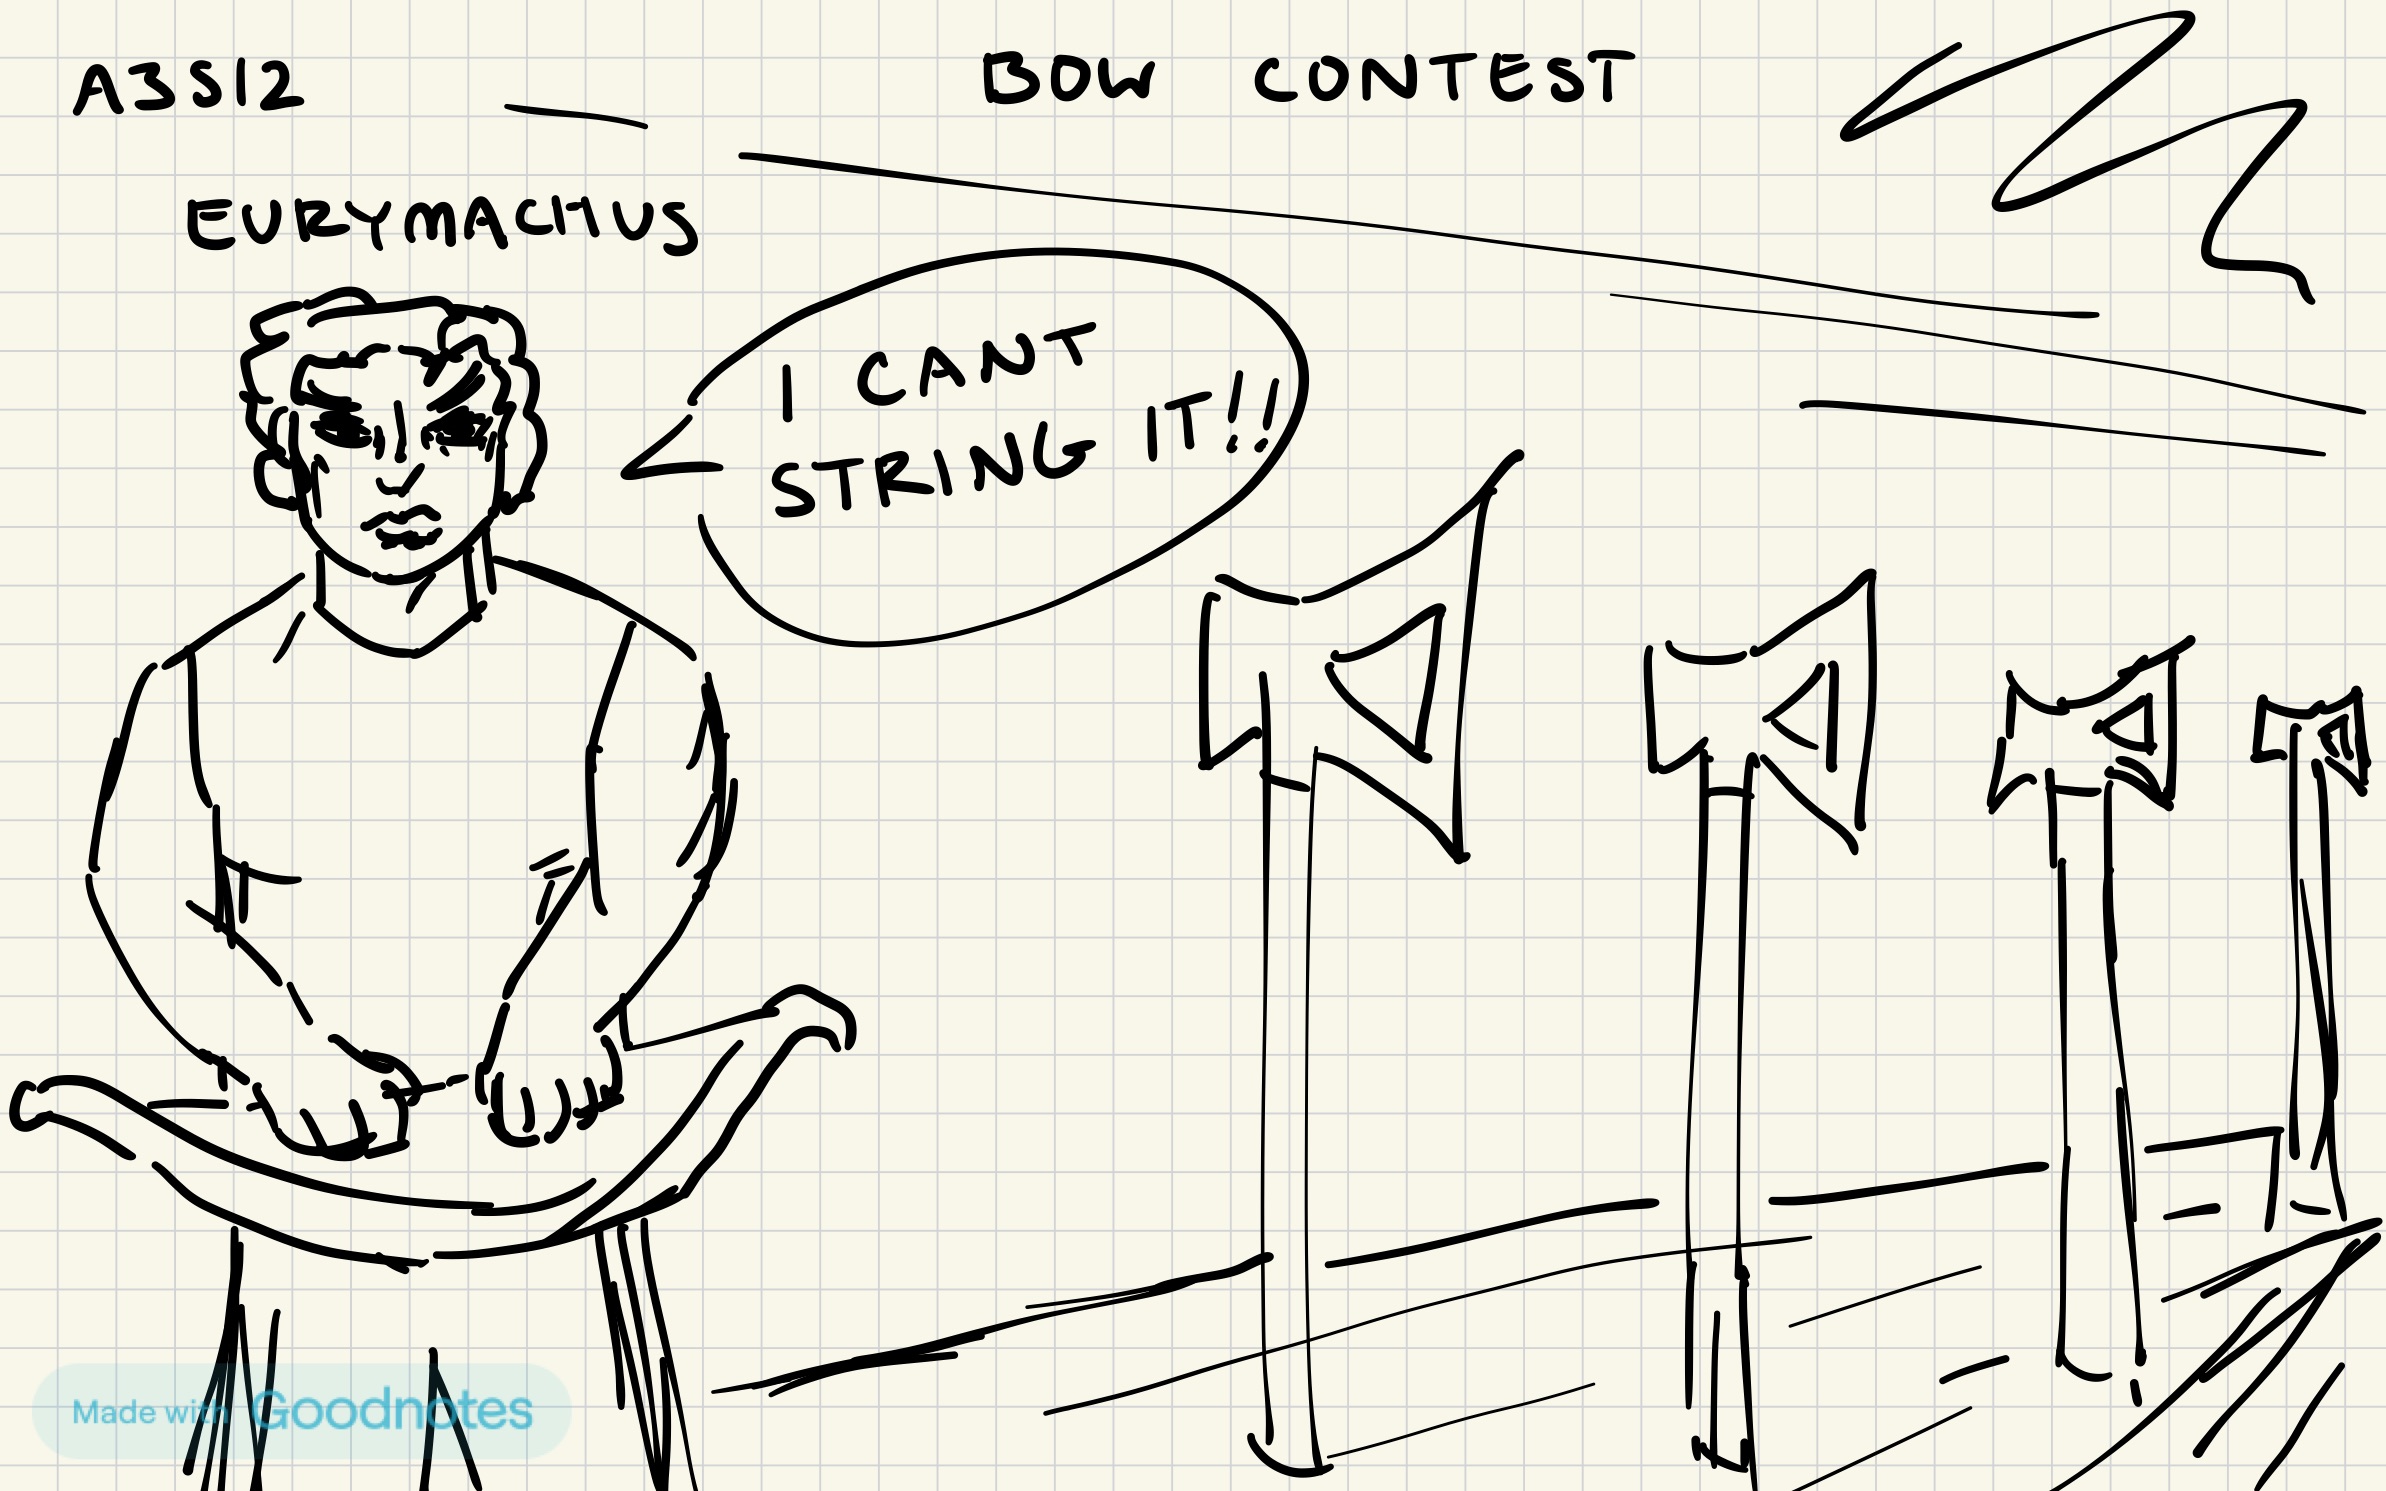 A3S12
BOW CONTEST
EURYMACHUS
I CANT
STRING IT!!
Made with Goodnotes